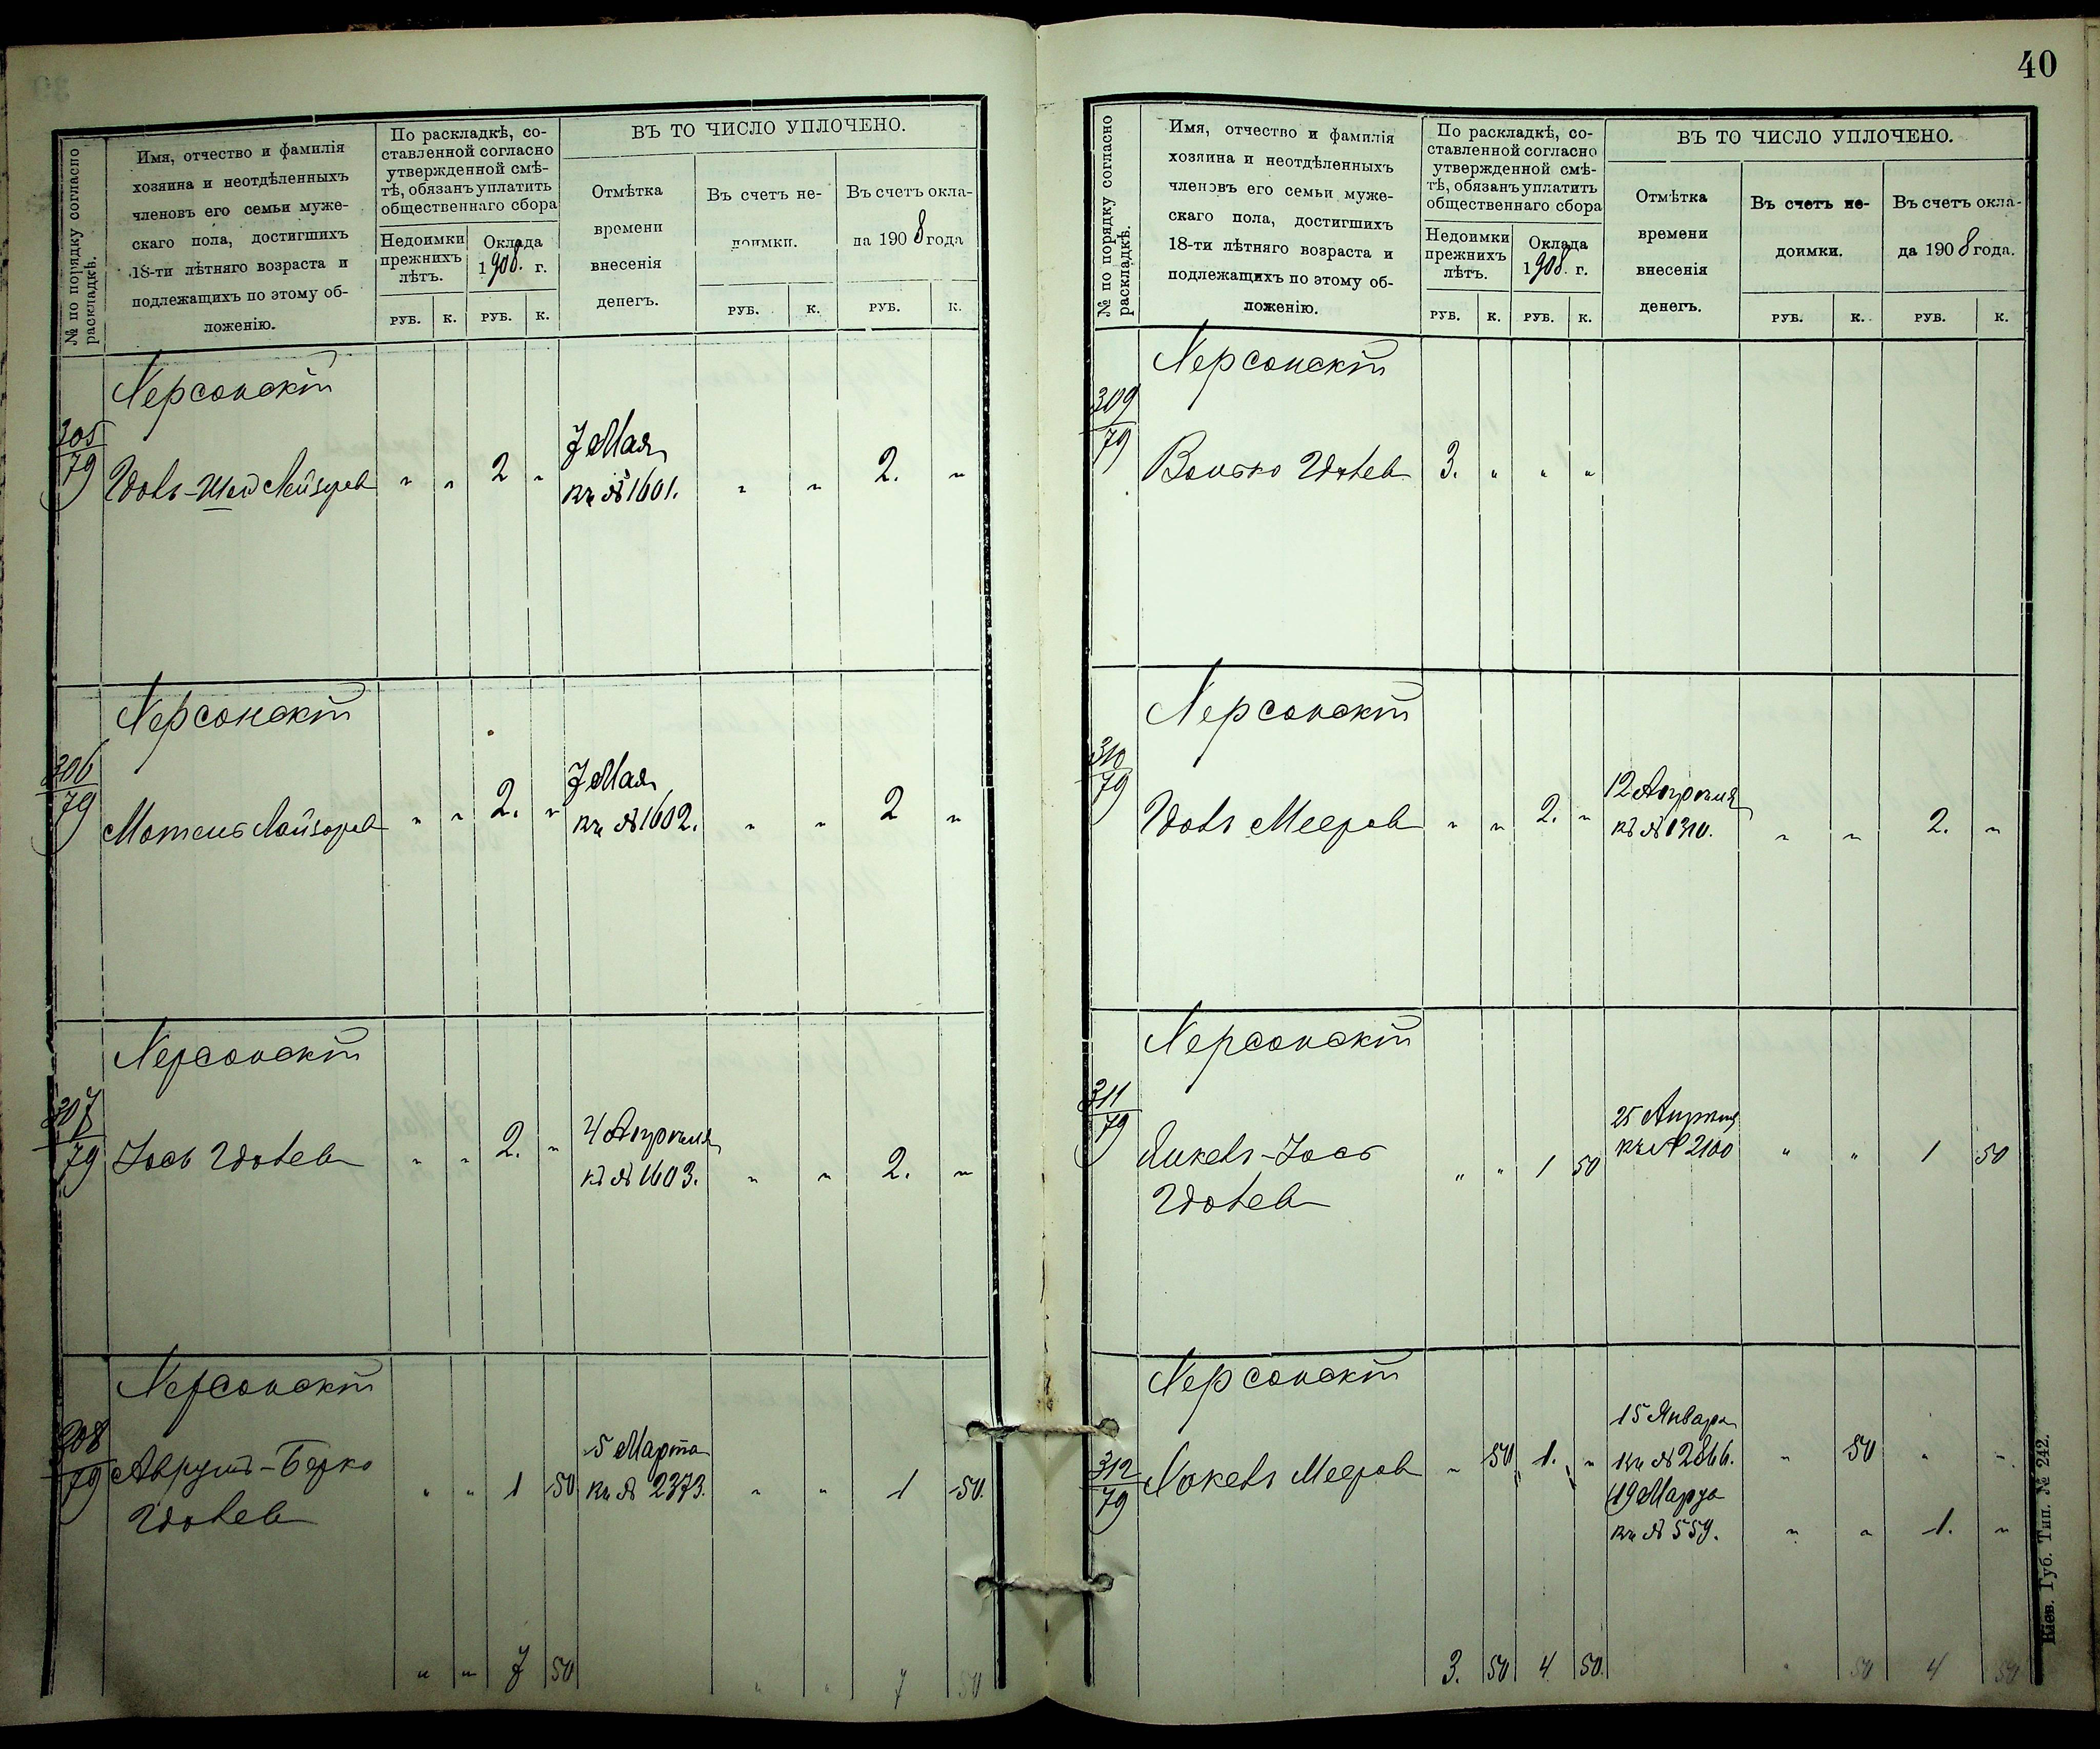 40
№ по порядку согласно раскладкѣ.
Имя, отчество и фамилія
хозяина и неотдѣленныхъ
членовъ его семьи муже-
скаго пола, достигшихъ
18-ти лѣтняго возраста и
подлежащихъ по этому об-
ложенію.
По раскладкѣ, со-
ставленной согласно
утвержденной смѣ-
тѣ, обязанъ уплатить
общественнаго сбора
Недоимки
прежнихъ
лѣтъ.
Оклада
1908. г.
ВЪ ТО ЧИСЛО УПЛОЧЕНО.
Отмѣтка
времени
внесенія
денегъ.
Въ счетъ не-
доимки.
Въ счетъ окла-
да 1908 года
РУБ. К. РУБ. К. РУБ. К. РУБ. К.
Херсонскій
305
79
Лейзоров " " 2 "
7 Мая
кв № 1601. " " 2. "
Херсонскій
306
79
Мотель Лейзоров " " 2. "
7 Мая
кв № 1602. " " 2 "
Херсонскій
307
79
Іось " " 2. "
4 Апреля
кв № 1603. " " 2. "
Херсонскій
308
79
Аврумъ-Берко " " 1 50
5 Марта
кв № 2373. " " 1 50.
" " 7 50 " " 7 50
№ по порядку согласно раскладкѣ.
Имя, отчество и фамилія
хозяина и неотдѣленныхъ
членовъ его семьи муже-
скаго пола, достигшихъ
18-ти лѣтняго возраста и
подлежащихъ по этому об-
ложенію.
По раскладкѣ, со-
ставленной согласно
утвержденной смѣ-
тѣ, обязанъ уплатить
общественнаго сбора
Недоимки
прежнихъ
лѣтъ.
Оклада
1908. г.
ВЪ ТО ЧИСЛО УПЛОЧЕНО.
Отмѣтка
времени
внесенія
денегъ.
Въ счетъ не-
доимки.
Въ счетъ окла-
да 1908 года.
РУБ. К. РУБ. К. РУБ. К. РУБ. К.
Херсонскій
309
79
Волько 3. " " "
Херсонскій
310
79
Мееров " " 2. "
12 Апреля
кв № 1310. " " 2. "
Херсонскій
311
79
Янкель-Іось " " 1 50
25 Апреля
кв № 2100 " " 1 50
Херсонскій
312
79
Мееров " 50 1. "
15 Января
кв № 2866. " 50 " "
19 Марта
кв № 559. " " 1. "
3. 50 4 50. " 50 4 50
Кіев. Губ. Тип. № 242.